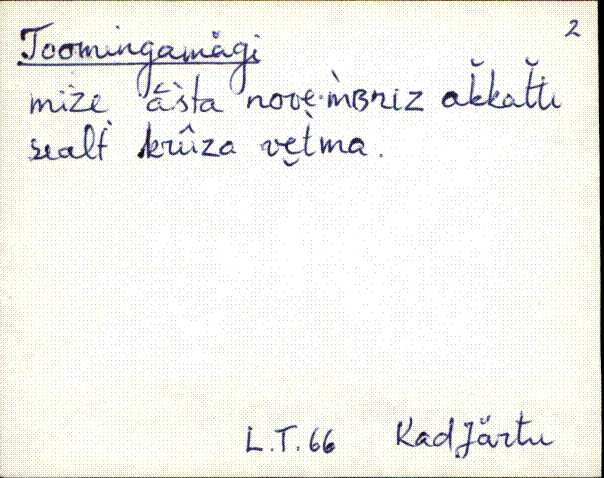 2
Toomingamägi
miže ä̀sta nove·m̀ʙriz ak̆kat̆ti
sealt̀ krûza vet̀ma.
L.T. 66 KadJärtu